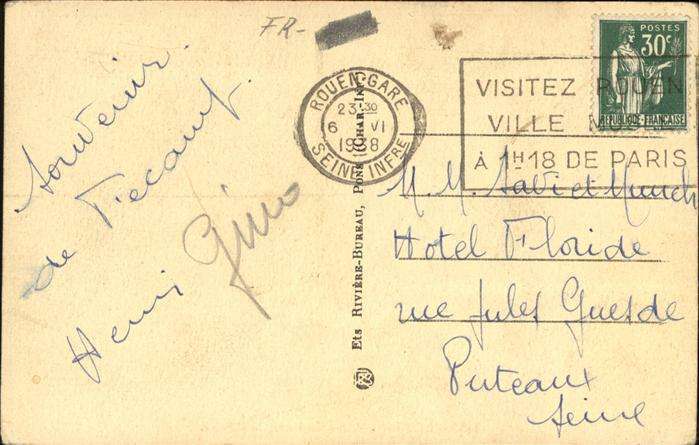 FR-
Souvenir
de Fécamp
Henri
Gino
ROUEN-GARE
23 30
6 VI
1938
SEINE INFRE
POSTES
30c
RÉPUBLIQUE-FRANÇAISE
VISITEZ ROUEN
VILLE MUSÉE
À 1H18 DE PARIS
Ets RIVIÈRE-BUREAU, PONS (CHAR.-INF.)
M. M. et
Hotel Floride
rue Jules Guesde
Puteaux
Seine